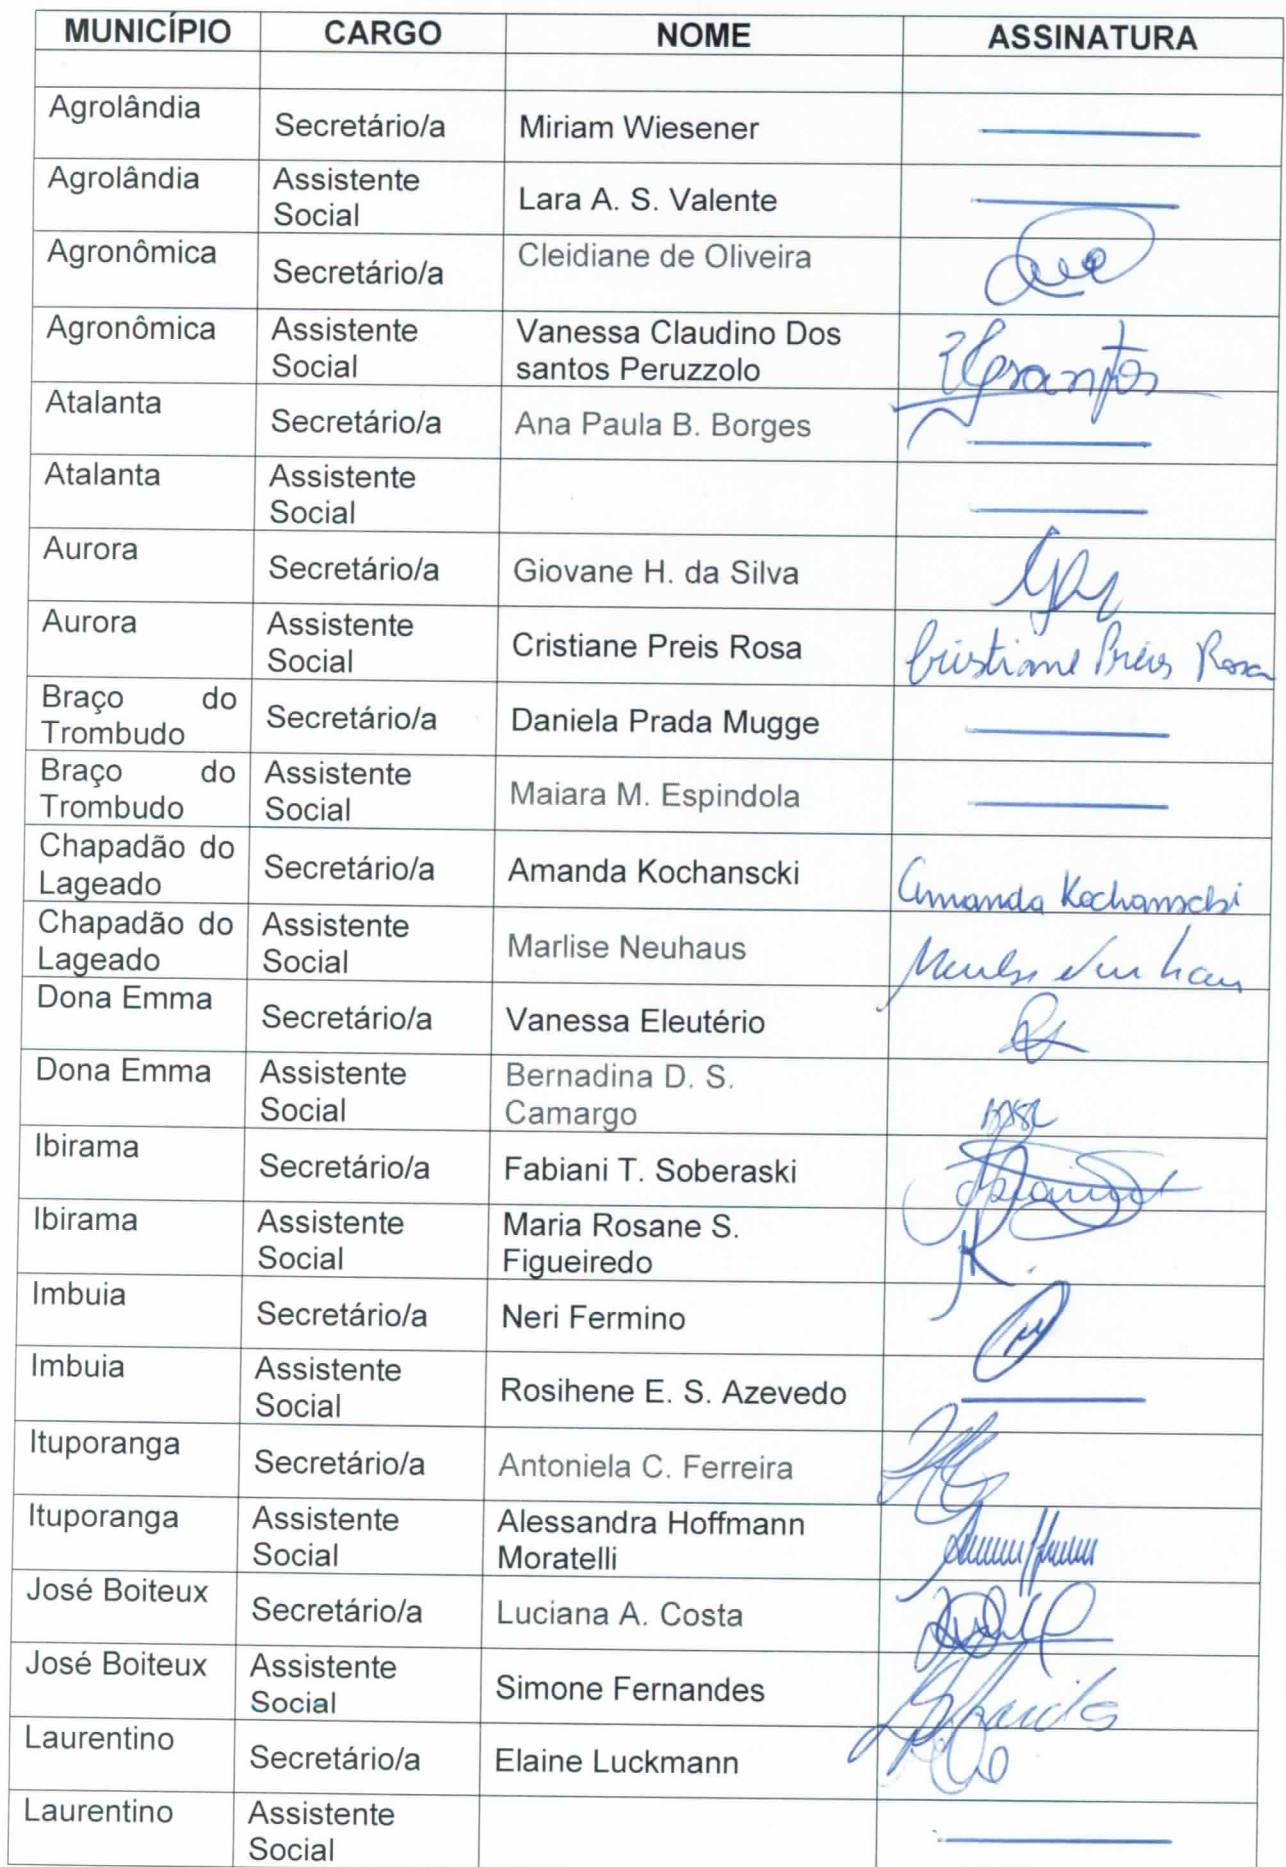 MUNICÍPIO CARGO NOME ASSINATURA
Agrolândia Secretário/a Miriam Wiesener
Agrolândia Assistente Social Lara A. S. Valente
Agronômica Secretário/a Cleidiane de Oliveira
Agronômica Assistente Social Vanessa Claudino Dos santos Peruzzolo
Atalanta Secretário/a Ana Paula B. Borges
Atalanta Assistente Social
Aurora Secretário/a Giovane H. da Silva
Aurora Assistente Social Cristiane Preis Rosa Cristiane Preis Rosa
Braço do Trombudo Secretário/a Daniela Prada Mugge
Braço do Trombudo Assistente Social Maiara M. Espindola
Chapadão do Lageado Secretário/a Amanda Kochanscki Amanda Kochanscki
Chapadão do Lageado Assistente Social Marlise Neuhaus
Dona Emma Secretário/a Vanessa Eleutério
Dona Emma Assistente Social Bernadina D. S. Camargo
Ibirama Secretário/a Fabiani T. Soberaski
Ibirama Assistente Social Maria Rosane S. Figueiredo
Imbuia Secretário/a Neri Fermino
Imbuia Assistente Social Rosihene E. S. Azevedo
Ituporanga Secretário/a Antoniela C. Ferreira
Ituporanga Assistente Social Alessandra Hoffmann Moratelli
José Boiteux Secretário/a Luciana A. Costa
José Boiteux Assistente Social Simone Fernandes
Laurentino Secretário/a Elaine Luckmann
Laurentino Assistente Social